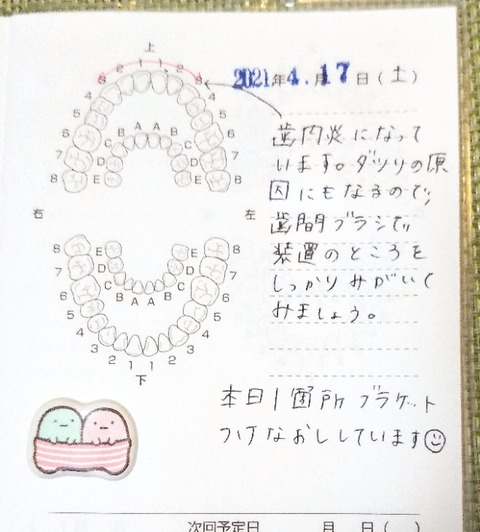 上
3 2 1 1 2 3
4 4
5 5
6 6
7 7
8 8
B A A B
C C
D D
E E
2021年4.月17日(土)
歯肉炎になって
います。ダツリの原
因にもなるので、
歯間ブラシで、
装置のところを
しっかりみがいて
みましょう。
右 左
8 8
7 7
6 6
5 5
4 4
3 3
2 1 1 2
E E
D D
C C
B A A B
下
本日1箇所ブラケット
つけなおししています
次回予定日 月 日( )